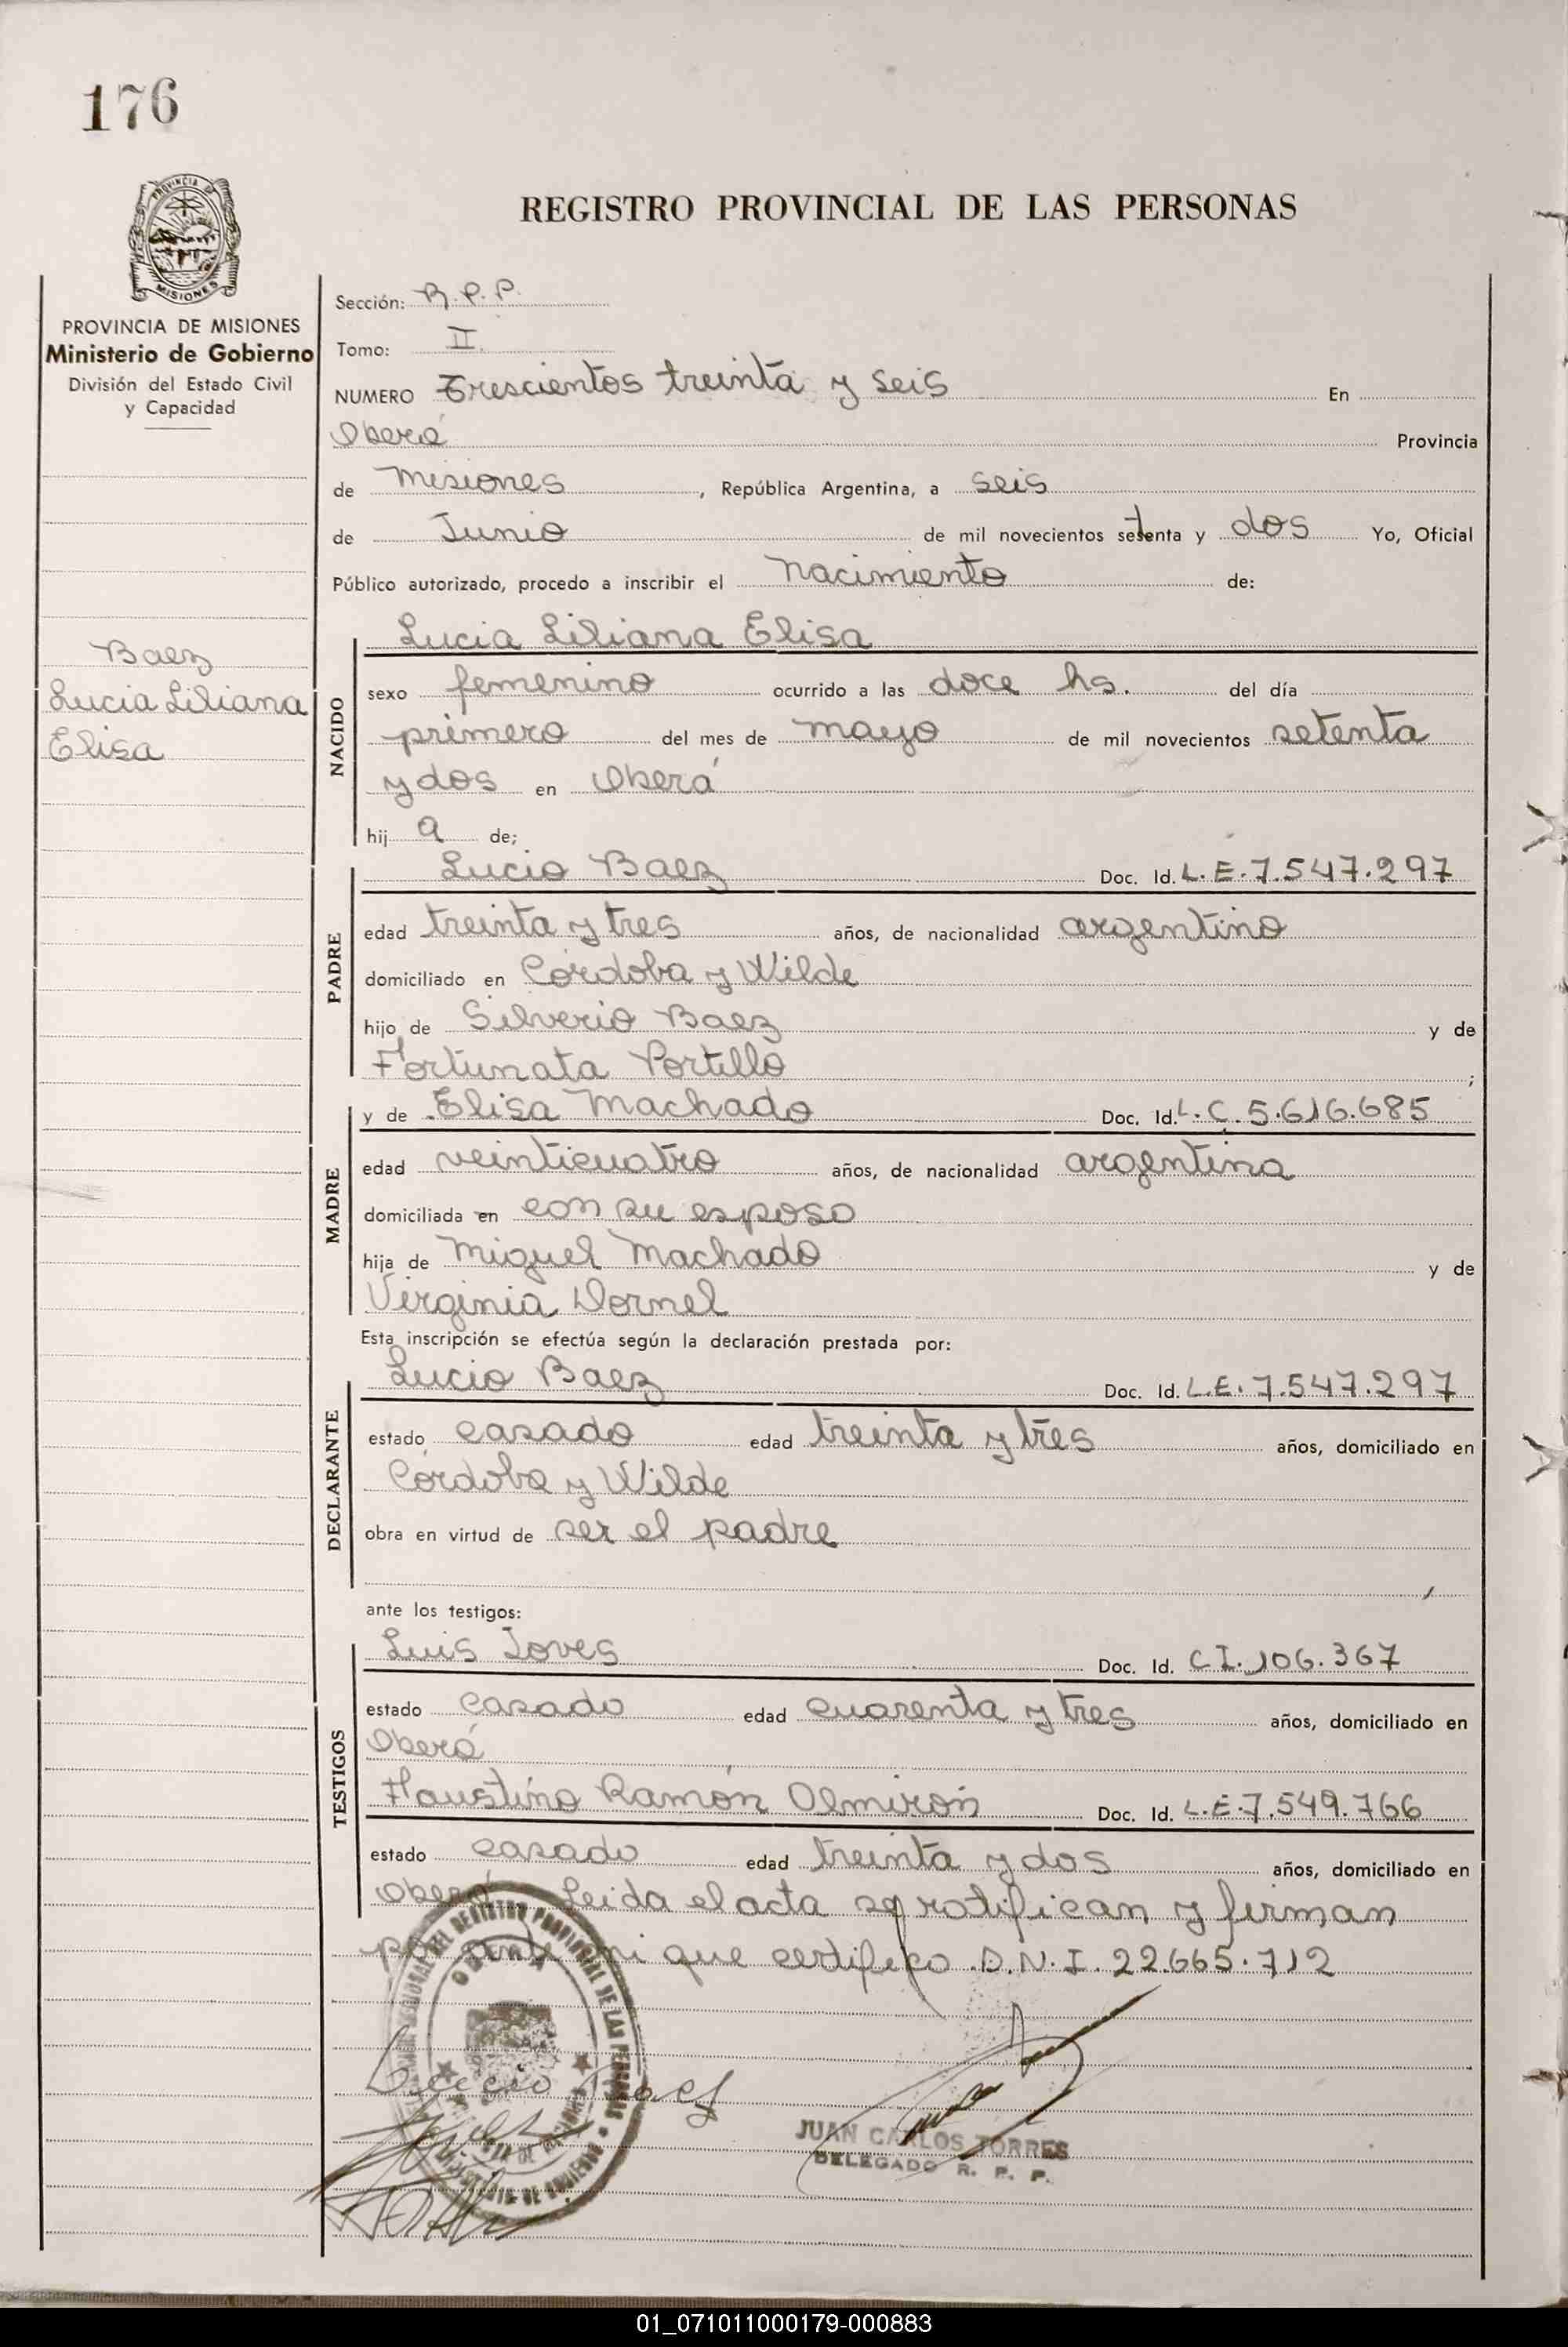 176
PROVINCIA DE
MISIONES
PROVINCIA DE MISIONES
Ministerio de Gobierno
División del Estado Civil
y Capacidad
Baez
Lucia Liliana
Elisa
REGISTRO PROVINCIAL DE LAS PERSONAS
Sección: R.P.P.
Tomo: II
NUMERO Trescientos treinta y seis En
Oberá Provincia
de Misiones, República Argentina, a seis
de Junio de mil novecientos setenta y dos Yo, Oficial
Público autorizado, procedo a inscribir el nacimiento de:
NACIDO
Lucia Liliana Elisa
sexo femenino ocurrido a las doce hs. del día
primero del mes de mayo de mil novecientos setenta
y dos en Oberá
hija de;
PADRE
Lucio Baez Doc. Id. L.E.7.547.297
edad treinta y tres años, de nacionalidad argentino
domiciliado en Córdoba y Wilde
hijo de Silverio Baez y de
Fortunata Portillo ;
MADRE
y de Elisa Machado Doc. Id. L.C.5.616.685
edad veinticuatro años, de nacionalidad argentina
domiciliada en con su esposo
hija de Miguel Machado y de
Virginia Dornel
Esta inscripción se efectúa según la declaración prestada por:
DECLARANTE
Lucio Baez Doc. Id. L.E.7.547.297
estado casado edad treinta y tres años, domiciliado en
Córdoba y Wilde
obra en virtud de ser el padre
ante los testigos:
TESTIGOS
Luis Joves Doc. Id. C.I.106.367
estado casado edad cuarenta y tres años, domiciliado en
Oberá
Faustino Ramón Olmirón Doc. Id. L.E.7.549.766
estado casado edad treinta y dos años, domiciliado en
Oberá Leida el acta se ratifican y firman
por ante mi que certifico D.N.I. 22.665.712
DEL REGISTRO PROVINCIAL DE LAS PERSONAS
Lucio Baez
JUAN CARLOS TORRES
DELEGADO R. P. P.
01_071011000179-000883